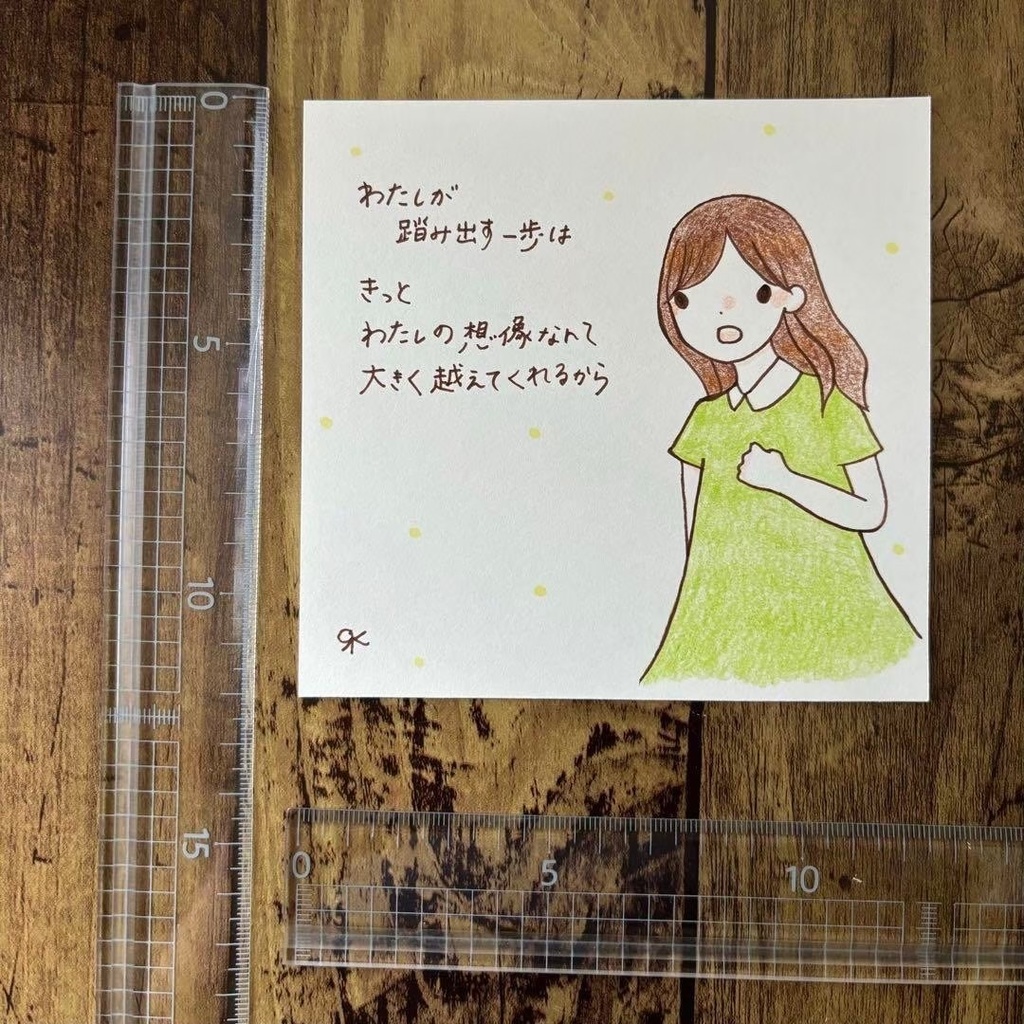 わたしが
踏み出す一歩は
きっと
わたしの想像なんて
大きく越えてくれるから
0
5
10
15
0
5
10